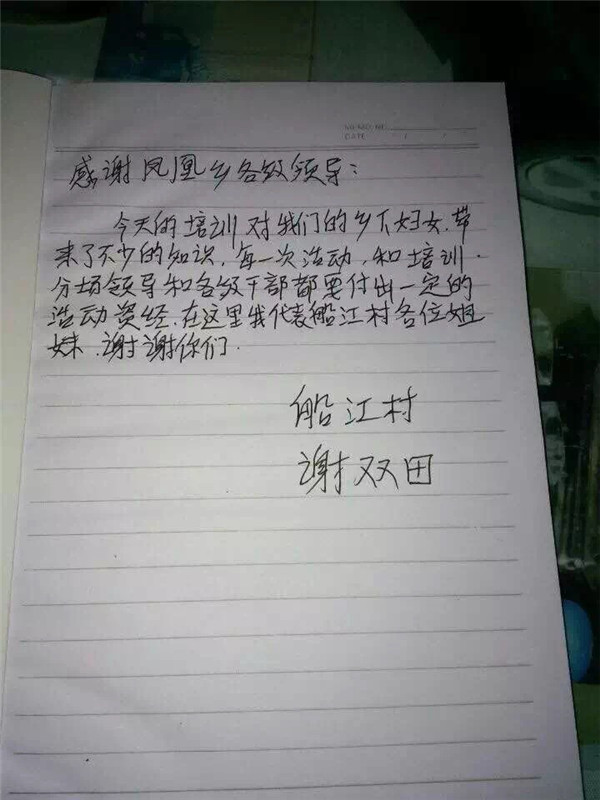 MEMO NO.
DATE / /
感谢凤凰乡各级领导:
今天的培训对我们的乡下妇女.带
来了不少的知识,每一次活动,和培训.
分场领导和各级干部都要付出一定的
活动资经.在这里我代表船江村各位姐
妹.谢谢你们.
船江村
谢双田